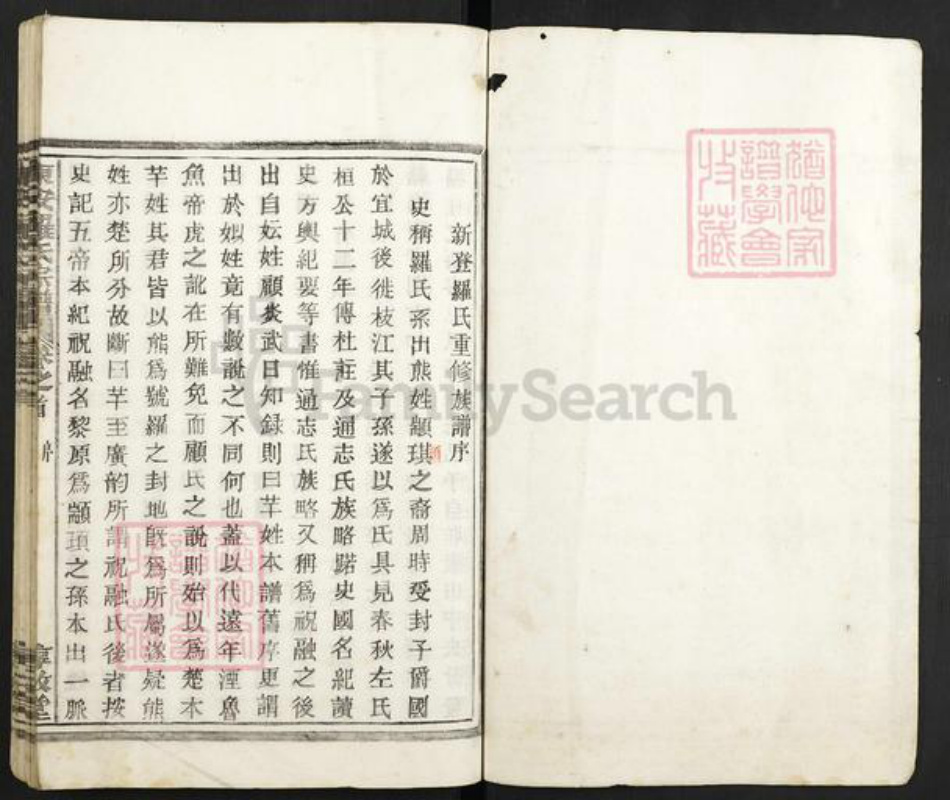 新登羅氏重修族譜序
史稱羅氏系出熊姓顓琪之裔周時受封子爵國
於宜城後徙枝江其子孫遂以為氏具見春秋左氏
桓公十二年傳杜註及通志氏族略路史國名紀讀
史方輿紀要等書惟通志氏族略又稱為祝融之後
出自妘姓顧炎武日知録則曰芊姓本譜舊序更謂
出於姒姓竟有數說之不同何也蓋以代遠年湮魯
魚帝虎之訛在所難免而顧氏之說則始以為楚本
芊姓其君皆以熊為號羅之封地既為所屬遂疑熊
姓亦楚所分故斷曰芊至廣韵所謂祝融氏後者按
史記五帝本紀祝融名黎原為顓頊之孫本出一脈
東安羅氏宗譜 卷之首 序
享敘堂
猶他家
譜學會
收藏
猶他家
譜學會
收藏
FamilySearch